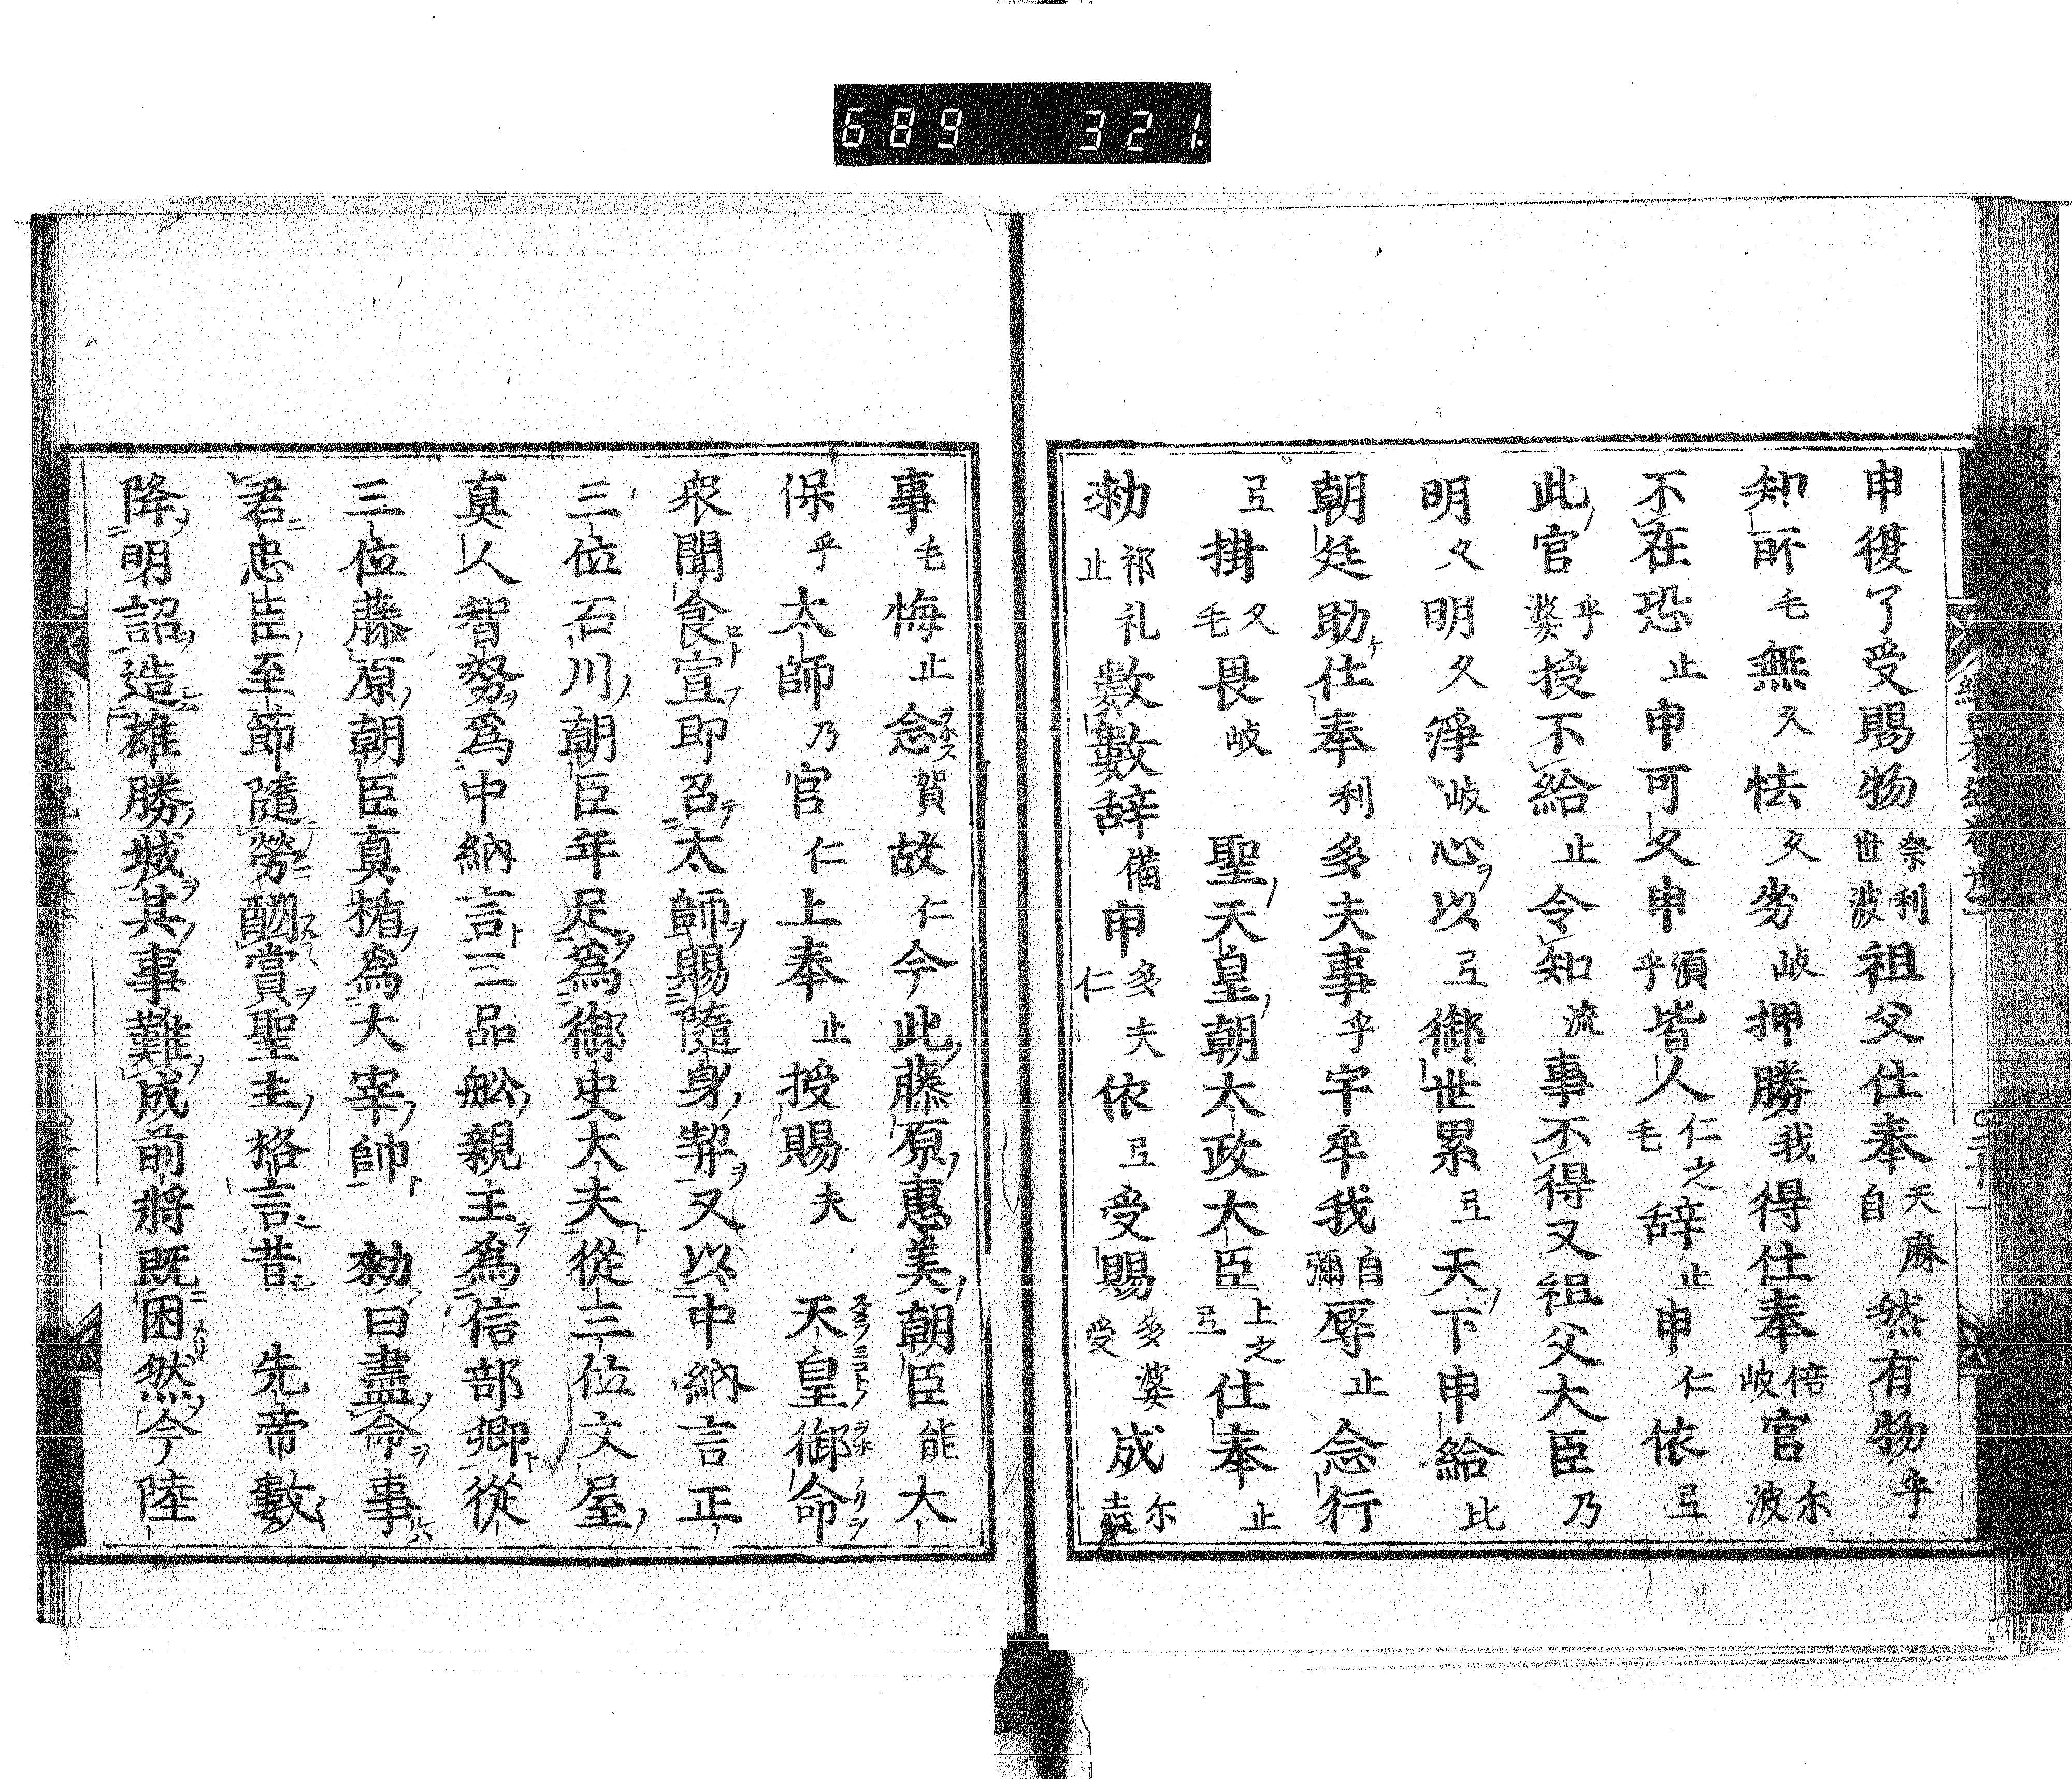 689 321
申復了受賜物奈利世波祖父仕奉天麻自然有物乎
知所毛無久怯久劣岐押勝我得仕奉倍岐官尓波
不在恐止申可久申須乎皆人仁之毛辞止申仁依弖
此官乎婆授不給止令知流事不得又祖父大臣乃
明久明久淨岐心以弖御世累弖天下申給比
朝廷助仕奉利多夫事乎宇牟我自彌辱止念行
弖掛久毛畏岐 聖天皇朝太政大臣上之弖仕奉止
勑祁礼止數數辞備申多夫仁依弖受賜多婆受成尓志
事毛悔止念賀故仁今此藤原惠美朝臣能大
保乎太師乃官仁上奉止授賜夫 天皇御命
衆聞食宣即召太師賜隨身契又以中納言正
三位石川朝臣年足為御史大夫從三位文屋
真人智努為中納言三品舩親王為信部卿從
三位藤原朝臣真楯為大宰帥 勑曰盡命事
君忠臣至節隨勞酬賞聖主格言昔 先帝數
降明詔造雄勝城其事難成前將既困然今陸